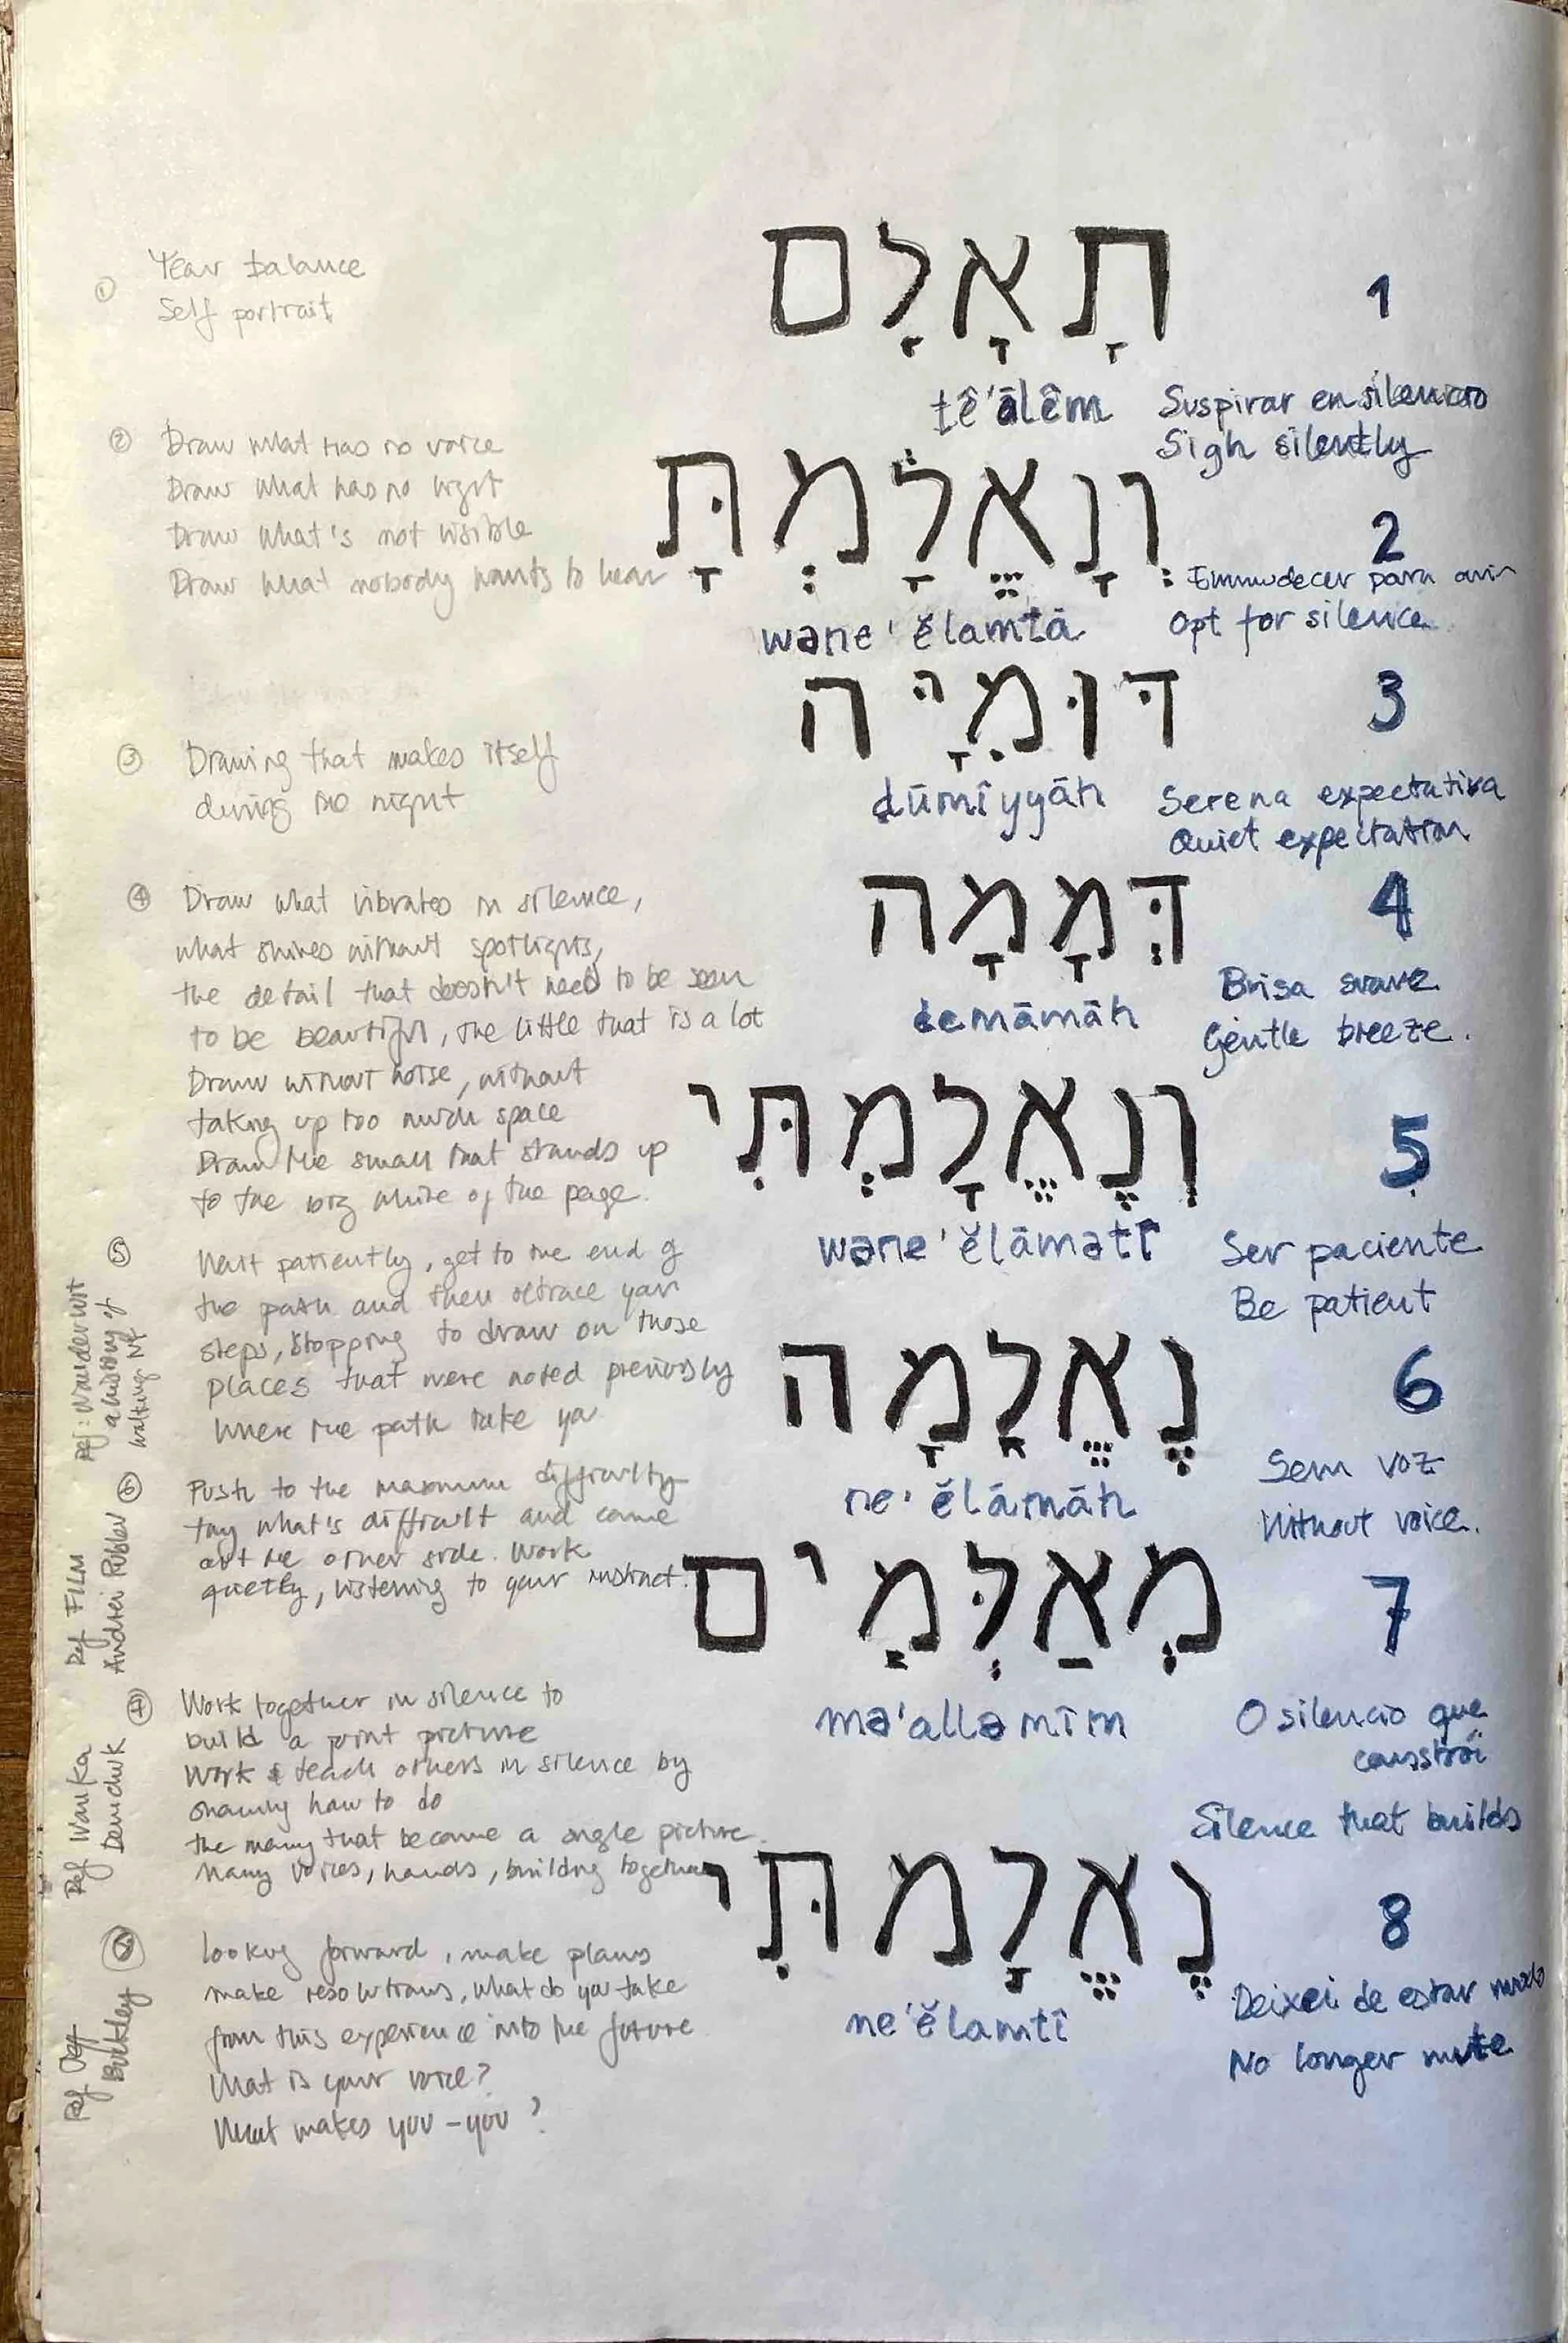 ① Year balance
Self portrait
תָאָלָם
1
tê'ālêm
Suspirar en silencio
Sigh silently
② Draw what has no voice
Draw what has no light
Draw what's not visible
Draw what nobody wants to hear
וְנָאֱלָמְתָּ
2
wəne'ĕlamtā
Emmudecer para ouvir
Opt for silence
③ Drawing that makes itself
during the night
דּוּמִיָּה
3
dūmîyyāh
Serena expectativa
Quiet expectation
④ Draw what vibrates in silence,
what shines without spotlights,
the detail that doesn't need to be seen
to be beautiful, the little that is a lot
Draw without noise, without
taking up too much space
Draw the small that stands up
to the big white of the page.
דְּמָמָה
4
demāmāh
Brisa suave
Gentle breeze.
⑤ Wait patiently, get to the end of
the path and then retrace your
steps, stopping to draw on those
places that were noted previously
Where the path take you
Ref: Wanderlust
a history of
walking
וְנֶאֱלָמְתִּי
5
wəne'ĕlāmətî
Ser paciente
Be patient
⑥ Push to the maximum difficulty
try what's difficult and come
out the other side. Work
quietly, listening to your instinct.
Ref FILM
Andrei Rublev
נֶאֱלָמָה
6
ne'ĕlāmāh
Sem voz
Without voice.
⑦ Work together in silence to
build a joint picture
Work & teach others in silence by
showing how to do
the many that become a single picture.
Many voices, hands, building together
Ref
מְאַלְּמִים
7
mə'alləmîm
O silencio que
consstrói
Silence that builds
⑧ looking forward, make plans
make resolutions, what do you take
from this experience into the future
What is your voice?
What makes you - you?
Ref Jeff
Buckley
נֶאֱלָמתִּי
8
ne'ĕlamtî
Deixei de estar mudo
No longer mute